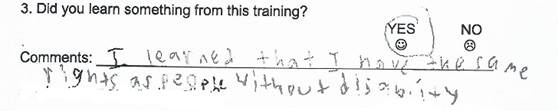 3. Did you learn something from this training?
YES NO
☺ ☹
Comments: I learned that I have the same
rights as people without disability